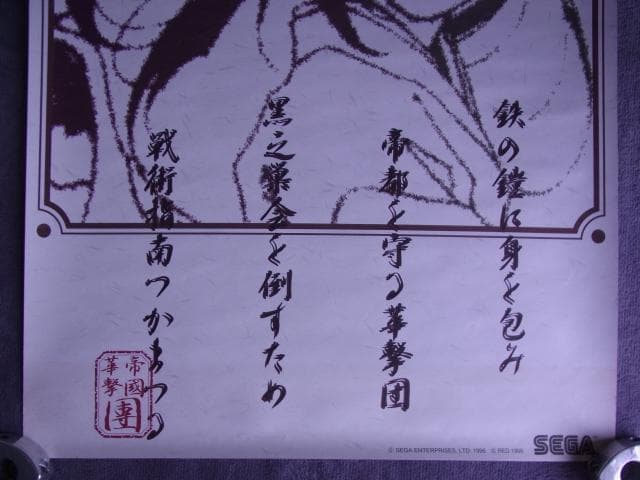 鉄の鎧に身を包み
帝都を守る華撃団
黒之巣会を倒すため
戦術指南つかまつる
帝國
華撃
團
© SEGA ENTERPRISES, LTD. 1996 © RED 1996
SEGA